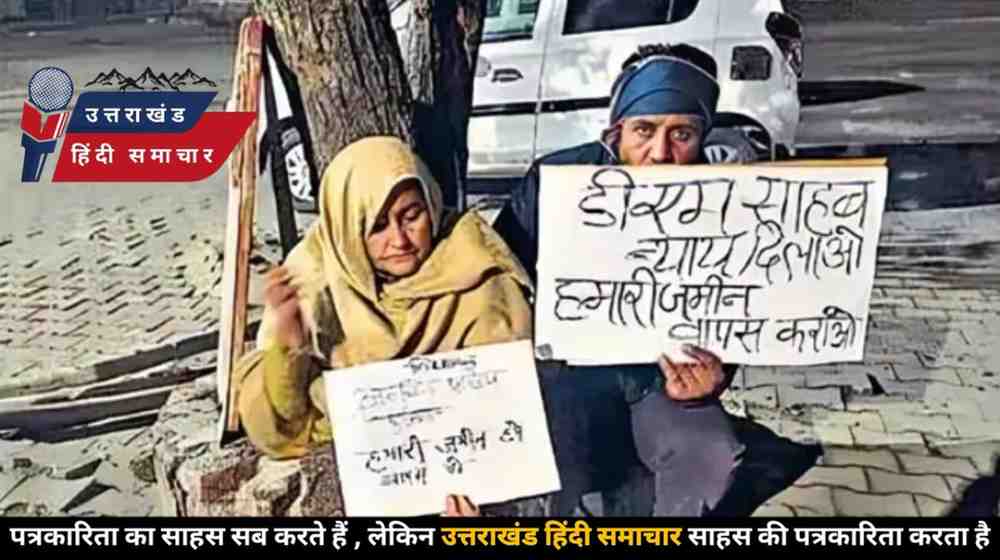 उत्तराखंड
हिंदी समाचार
डीएम साहब
न्याय दिलाओ
हमारी जमीन
वापस कराओ
हमारी जमीन हमें
वापस दो
पत्रकारिता का साहस सब करते हैं , लेकिन उत्तराखंड हिंदी समाचार साहस की पत्रकारिता करता है